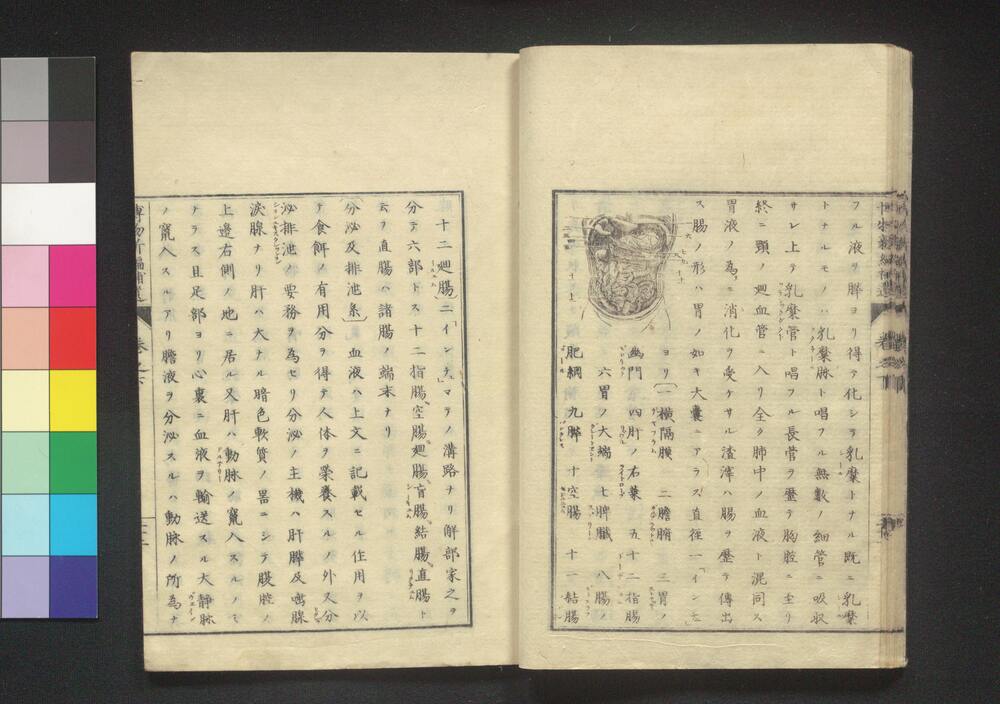 フル液ヲ膵ヨリ得テ化シテ乳糜トナル既ニ乳糜
トナルモノハ乳糜脉ト唱フル無數ノ細管ニ吸収
サレ上テ乳糜管ト唱フル長管ヲ歷テ胸腔ニ至リ
終ニ頸ノ廻血管ニ入リ全タ肺中ノ血液ト混同ス
胃液ノ為ニ消化ヲ受ケサル渣滓ハ腸ヲ歷テ傳出
ス腸ノ形ハ胃ノ如キ大囊ニアラス直徑一「インチ」
ヨリ(一橫隔膜 二膽腑 三胃ノ
幽門 四肝ノ右葉 五十二指腸
六胃ノ大端 七脾臟 八腸ノ
肥網 九膵 十空腸 十一結腸
十二廻腸)二「インチ」マテノ溝路ナリ解部家之ヲ
分テ六部トス十二指腸空腸廻腸盲腸結腸直腸ト
云フ直腸ハ諸腸ノ端末ナリ
分泌及排泄系)血液ハ上文ニ記載セル作用ヲ以
テ食餌ノ有用分ヲ得テ人体ヲ榮養スルノ外又分
泌排泄ノ要務ヲ為セリ分泌ノ主機ハ肝膵及唾腺
淚腺ナリ肝ハ大ナル暗色軟質ノ器ニシテ腹腔ノ
上邊右側ノ地ニ居ル又肝ハ動脉ノ竄入スルノミ
ナラス且足部ヨリ心裏ニ血液ヲ輸送スル大静脉
ノ竄入スルアリ膽液ヲ分泌スルハ動脉ノ所為ナ